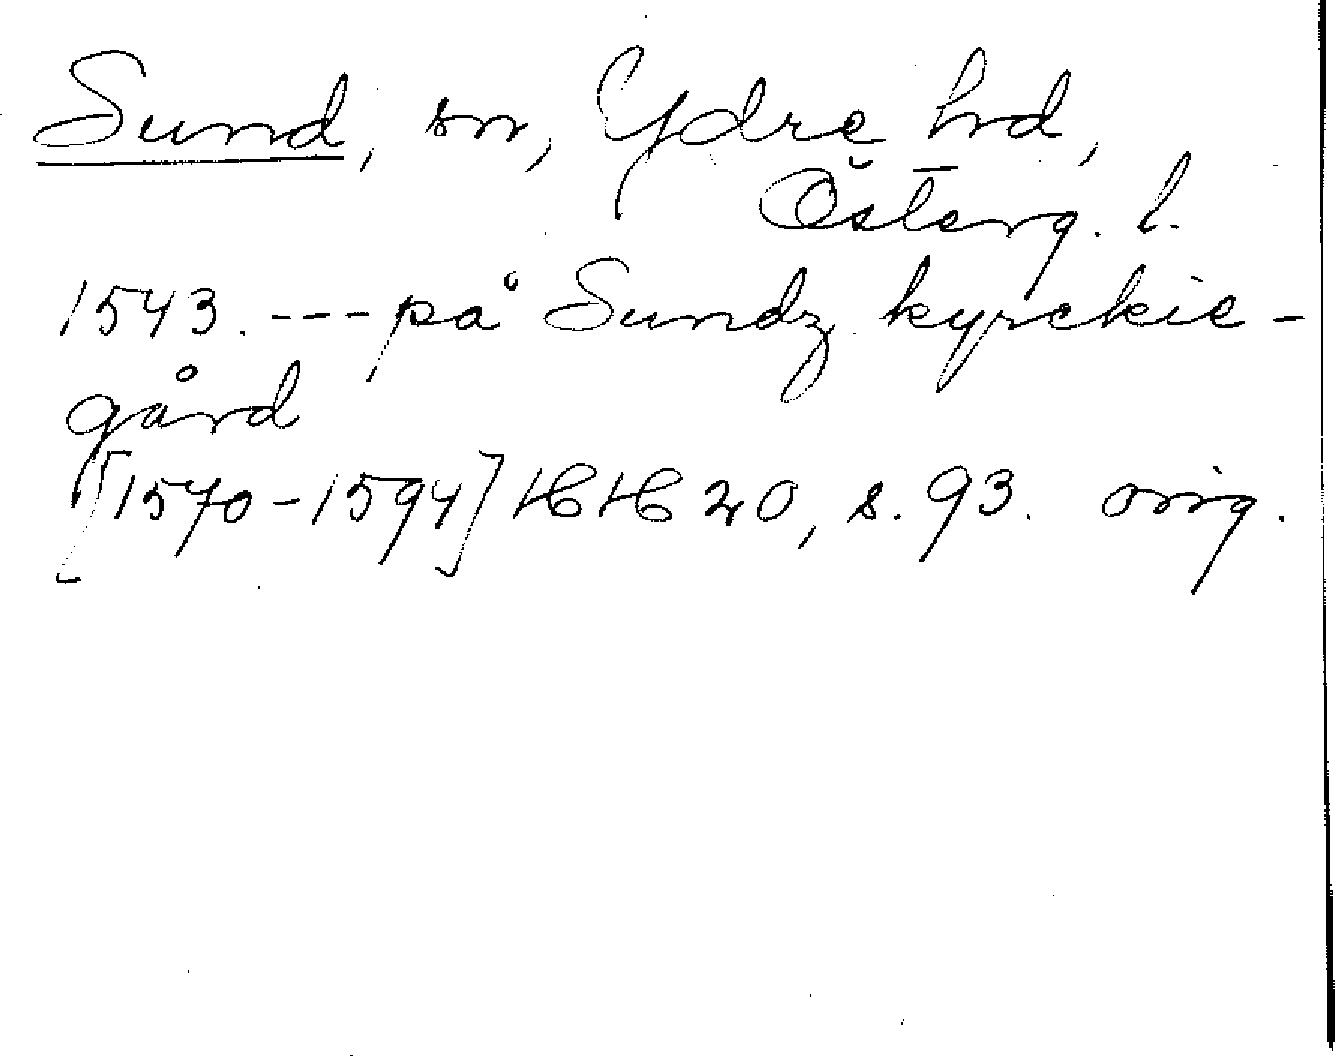 Sund, sn, Ydre hd,
Österg. l.
1543. --- på Sundz kyrckie-
gård
[1570-1594] HH 20, s. 93. orig.